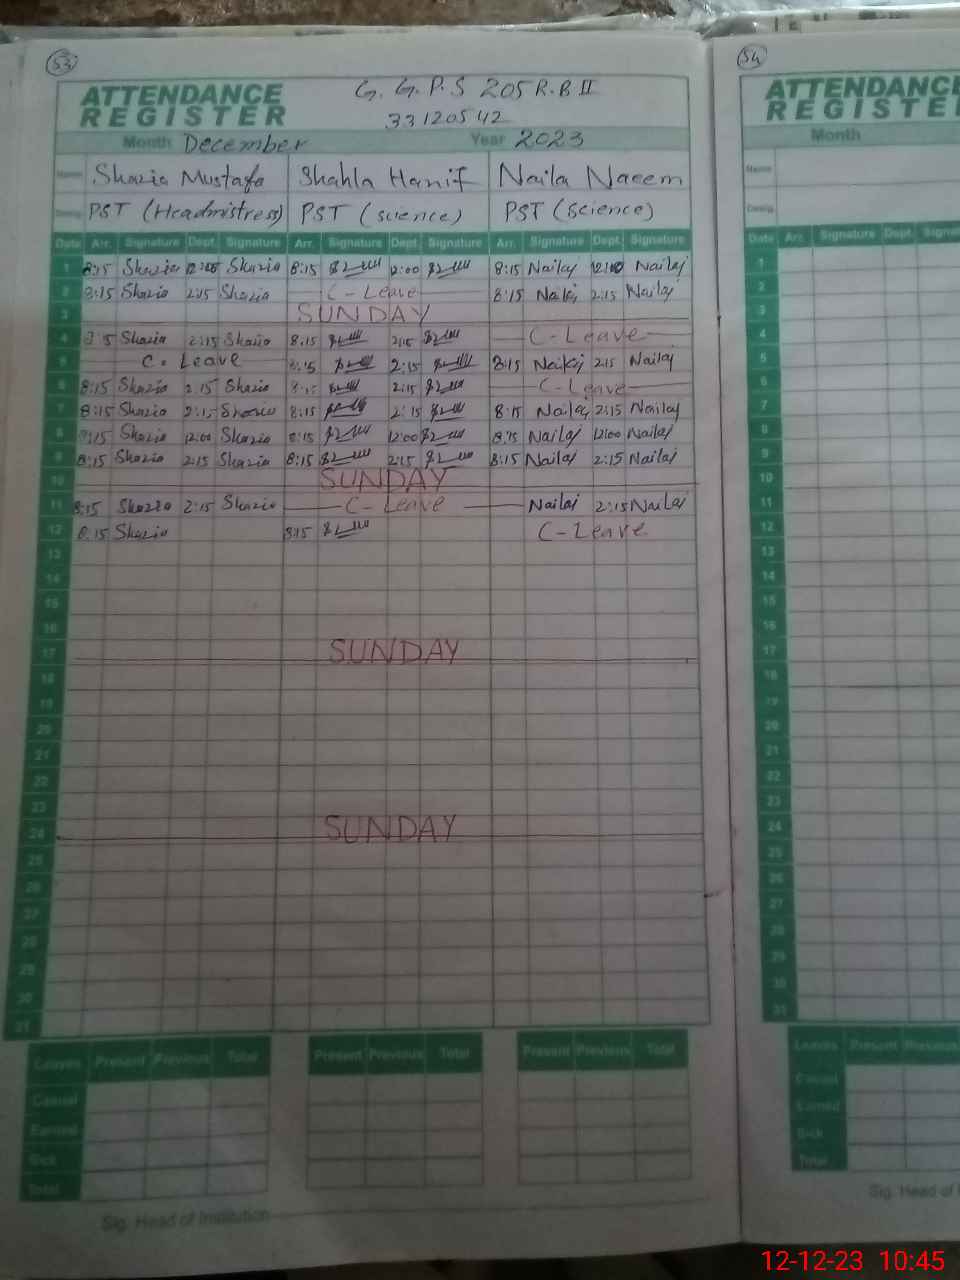 53
ATTENDANCE REGISTER
G.G.P.S 205 R.B II
33120542
Month December Year 2023
Name Shazia Mustafa Shahla Hanif Naila Naeem
Desig. PST (Headmistress) PST (science) PST (Science)
Date Arr. Signature Dept. Signature Arr. Signature Dept. Signature Arr. Signature Dept. Signature
1 8:15 Shazia 12:00 Shazia 8:15 12:00 8:15 Nailaj Nailaj
2 8:15 Shazia 2:15 Shazia C-Leave 8:15 Nailaj 2:15 Nailaj
3 SUNDAY
4 Shazia 2:15 Shazia 8:15 2:15 C-Leave
5 C. Leave 2:15 8:15 Nailaj 2:15 Nailaj
6 8:15 Shazia 2:15 Shazia 2:15 C-Leave
7 8:15 Shazia 2:15 Shazia 8:15 2:15 8:15 Nailaj 2:15 Nailaj
8 Shazia 12:00 Shazia 8:15 12:00 8:15 Nailaj 12:00 Nailaj
9 8:15 Shazia 2:15 Shazia 8:15 2:15 8:15 Nailaj 2:15 Nailaj
10 SUNDAY
11 8:15 Shazia 2:15 Shazia C-Leave Nailaj 2:15 Nailaj
12 8:15 Shazia 8:15 C-Leave
13
14
15
16
17 SUNDAY
18
19
20
21
22
23
24 SUNDAY
25
26
27
28
29
30
31
Leaves Present Previous Total Present Previous Total Present Previous Total
Casual
Earned
Sick
Total
Sig. Head of Institution
54
ATTENDANCE
REGISTER
Month
Name
Desig.
Date Arr. Signature Dept.
1
2
3
4
5
6
7
8
9
10
11
12
13
14
15
16
17
18
19
20
21
22
23
24
25
26
27
28
29
30
31
Leaves Present Previous
Casual
Earned
Sick
Total
Sig. Head of
12-12-23 10:45